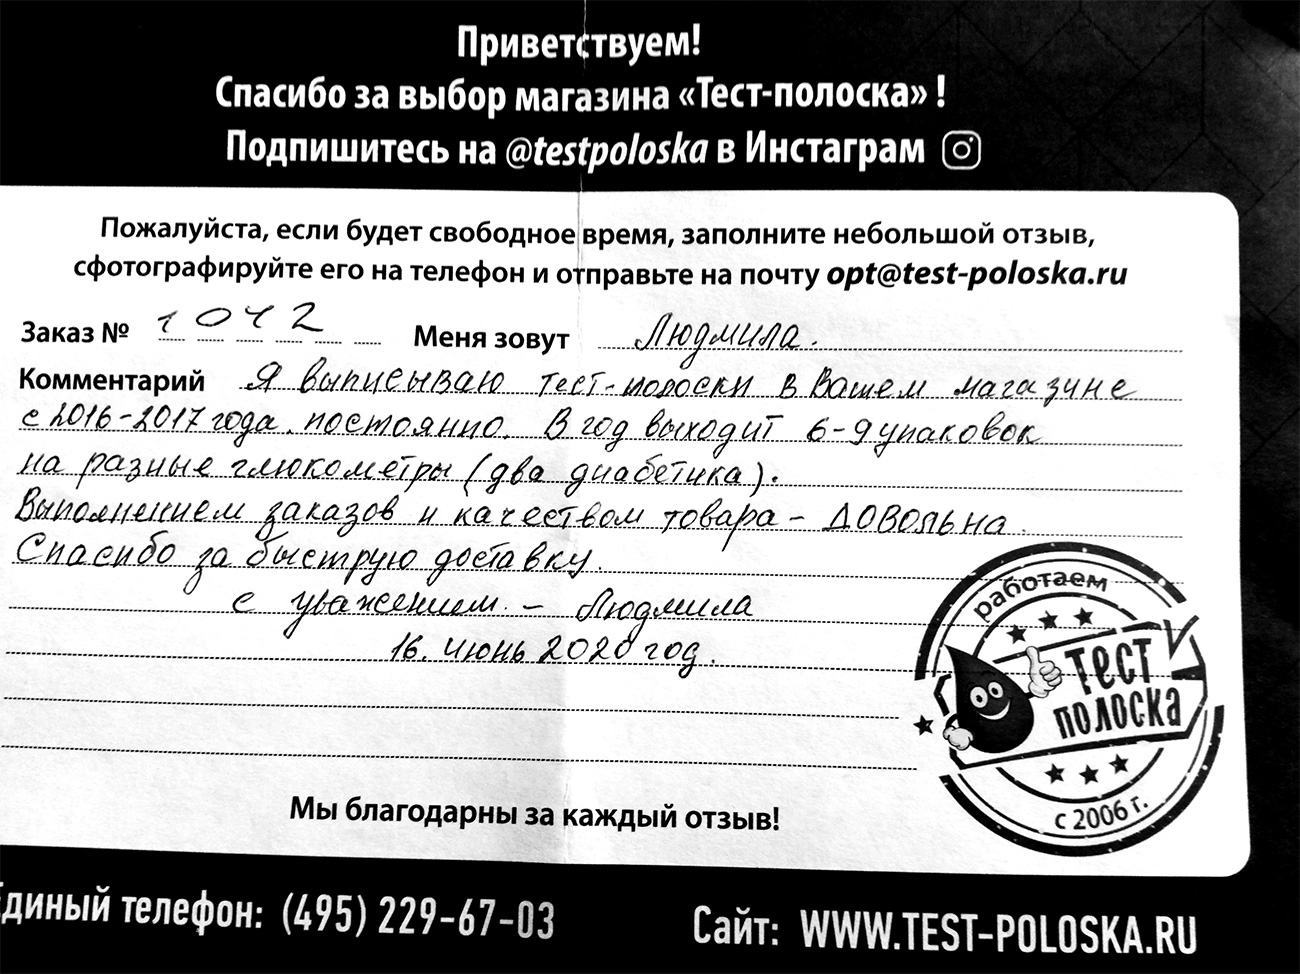 Приветствуем!
Спасибо за выбор магазина «Тест-полоска» !
Подпишитесь на @testpoloska в Инстаграм
Пожалуйста, если будет свободное время, заполните небольшой отзыв,
сфотографируйте его на телефон и отправьте на почту opt@test-poloska.ru
Заказ № 1042 Меня зовут Людмила.
Комментарий Я выписываю тест-полоски в Вашем магазине
с 2016-2017 года. постоянно. В год выходит 6-9 упаковок
на разные глюкометры (два диабетика).
Выполнением заказов и качеством товара - довольна.
Спасибо за быструю доставку.
с уважением. - Людмила
16. июнь 2020 год.
работаем
тест
полоска
с 2006 г.
Мы благодарны за каждый отзыв!
Единый телефон: (495) 229-67-03 Сайт: WWW.TEST-POLOSKA.RU